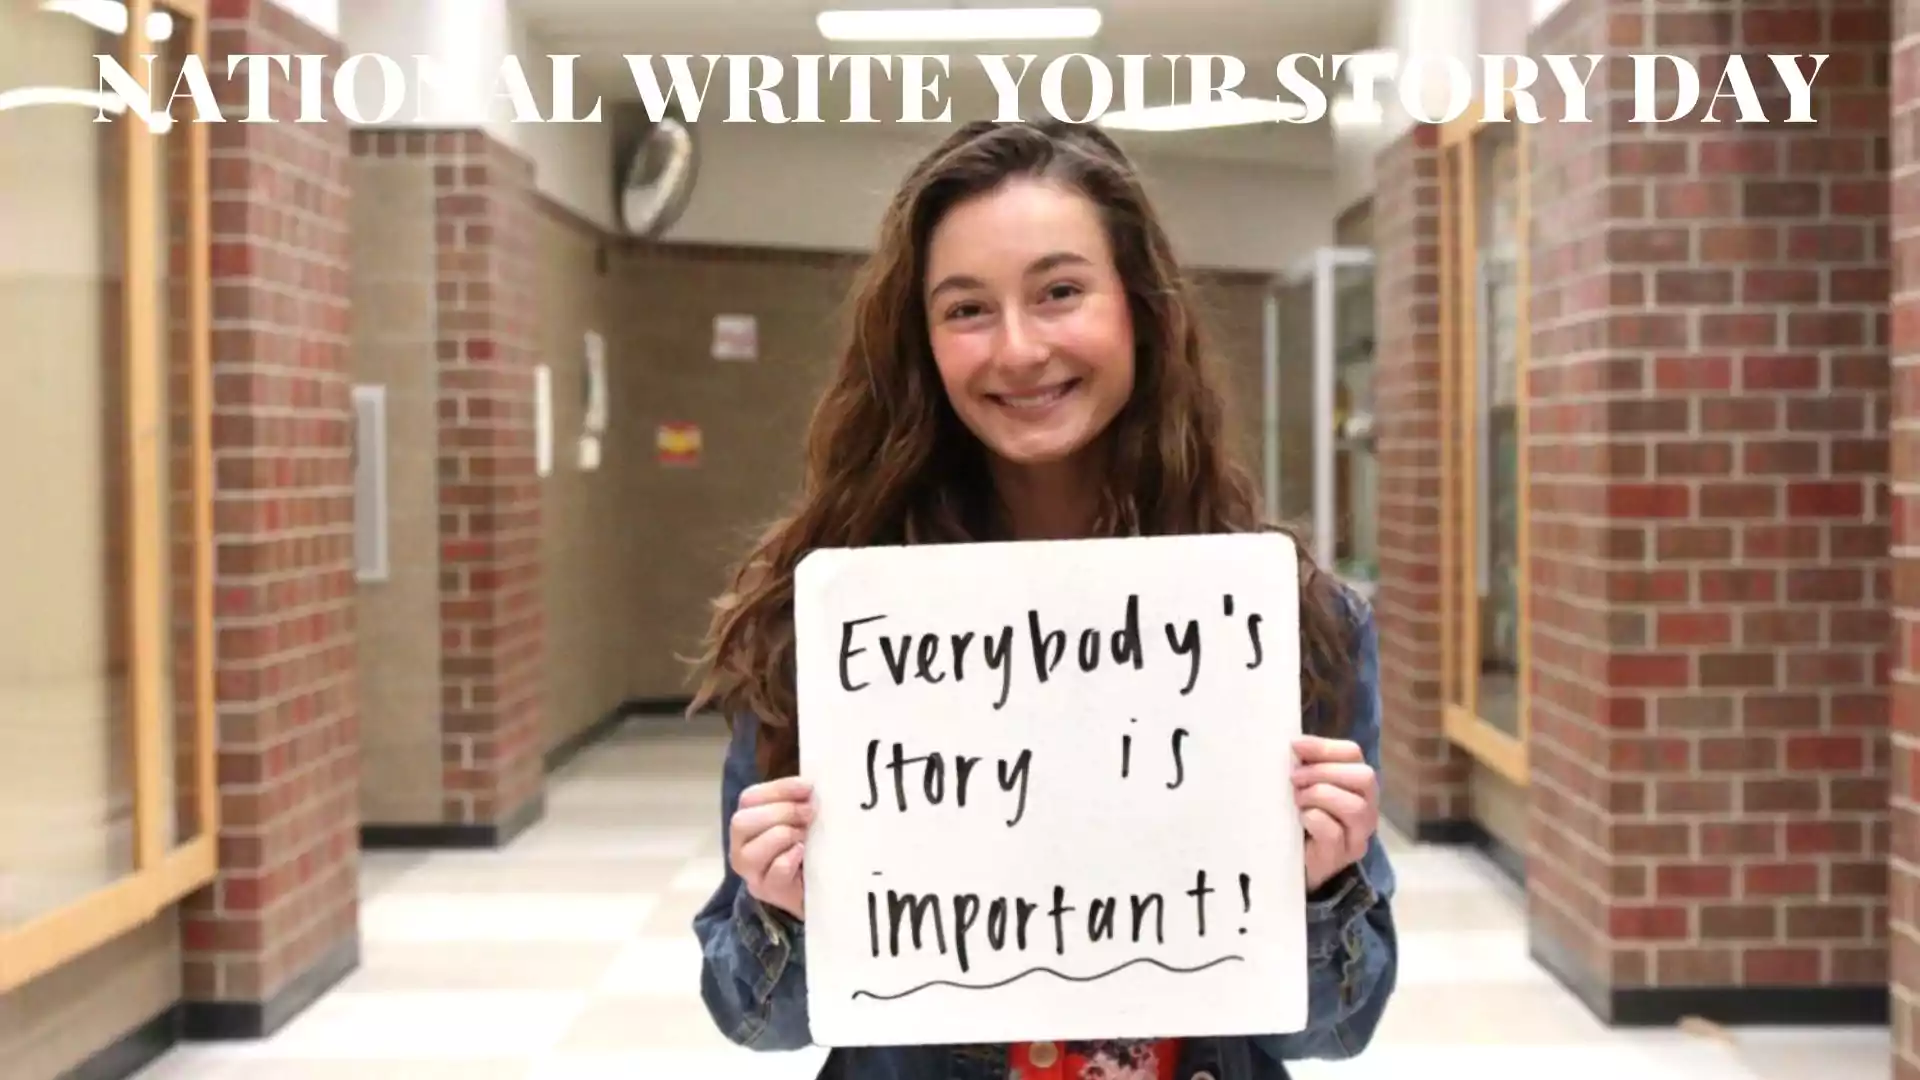 NATIONAL WRITE YOUR STORY DAY
Everybody's
story is
important!